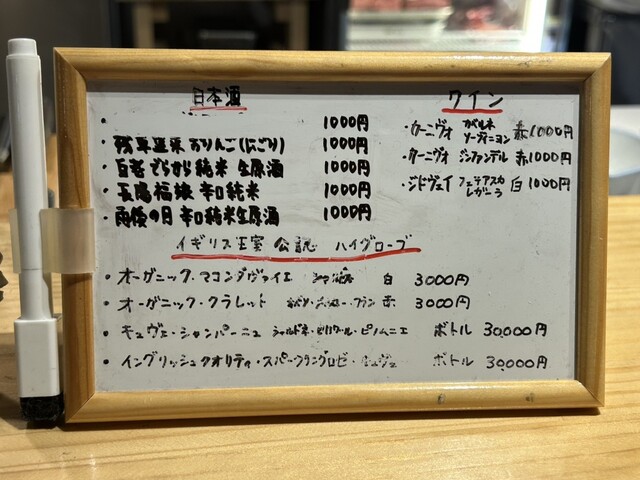 日本酒
・ 1000円
残草蓬莱 おりんご(にごり) 1000円
百春 でらから純米 生原酒 1000円
・五島福娘 辛口純米 1000円
・雨後の月 辛口純米生原酒 1000円
ワイン
・カーニヴォ カベルネ ソーヴィニヨン 赤 1000円
・カーニヴォ ジンファンデル 赤 1000円
・ジドヴェイ フェテアスカ レガーラ 白 1000円
イギリス王室 公認 ハイグローブ
・オーガニック・マコンダヴァイエ 白 3000円
・オーガニック・クラレット フラン 赤 3000円
・キュヴェ・シャンパーニュ シャルドネ・ピノムニエ ボトル 30,000円
・イングリッシュクオリティ・スパークリングロゼ・キュヴェ ボトル 30,000円